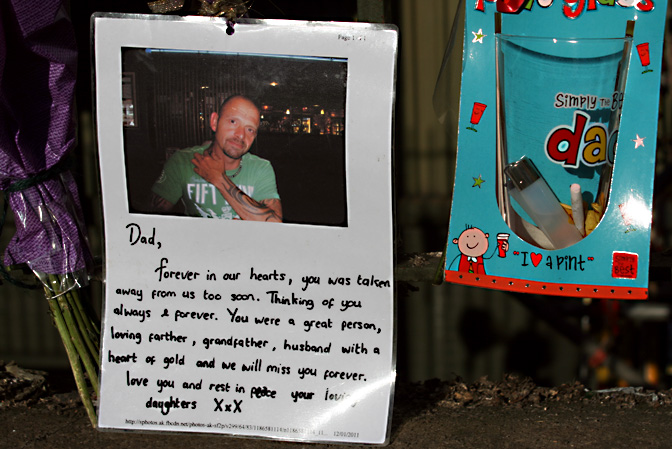 Page 1
FIFTY
Dad,
forever in our hearts, you was taken
away from us too soon. Thinking of you
always & forever. You were a great person,
loving farther, grandfather, husband with a
heart of gold and we will miss you forever.
love you and rest in your loving
daughters XxX
12/01/2011
Simply THE
dad
"I ♥ a pint"